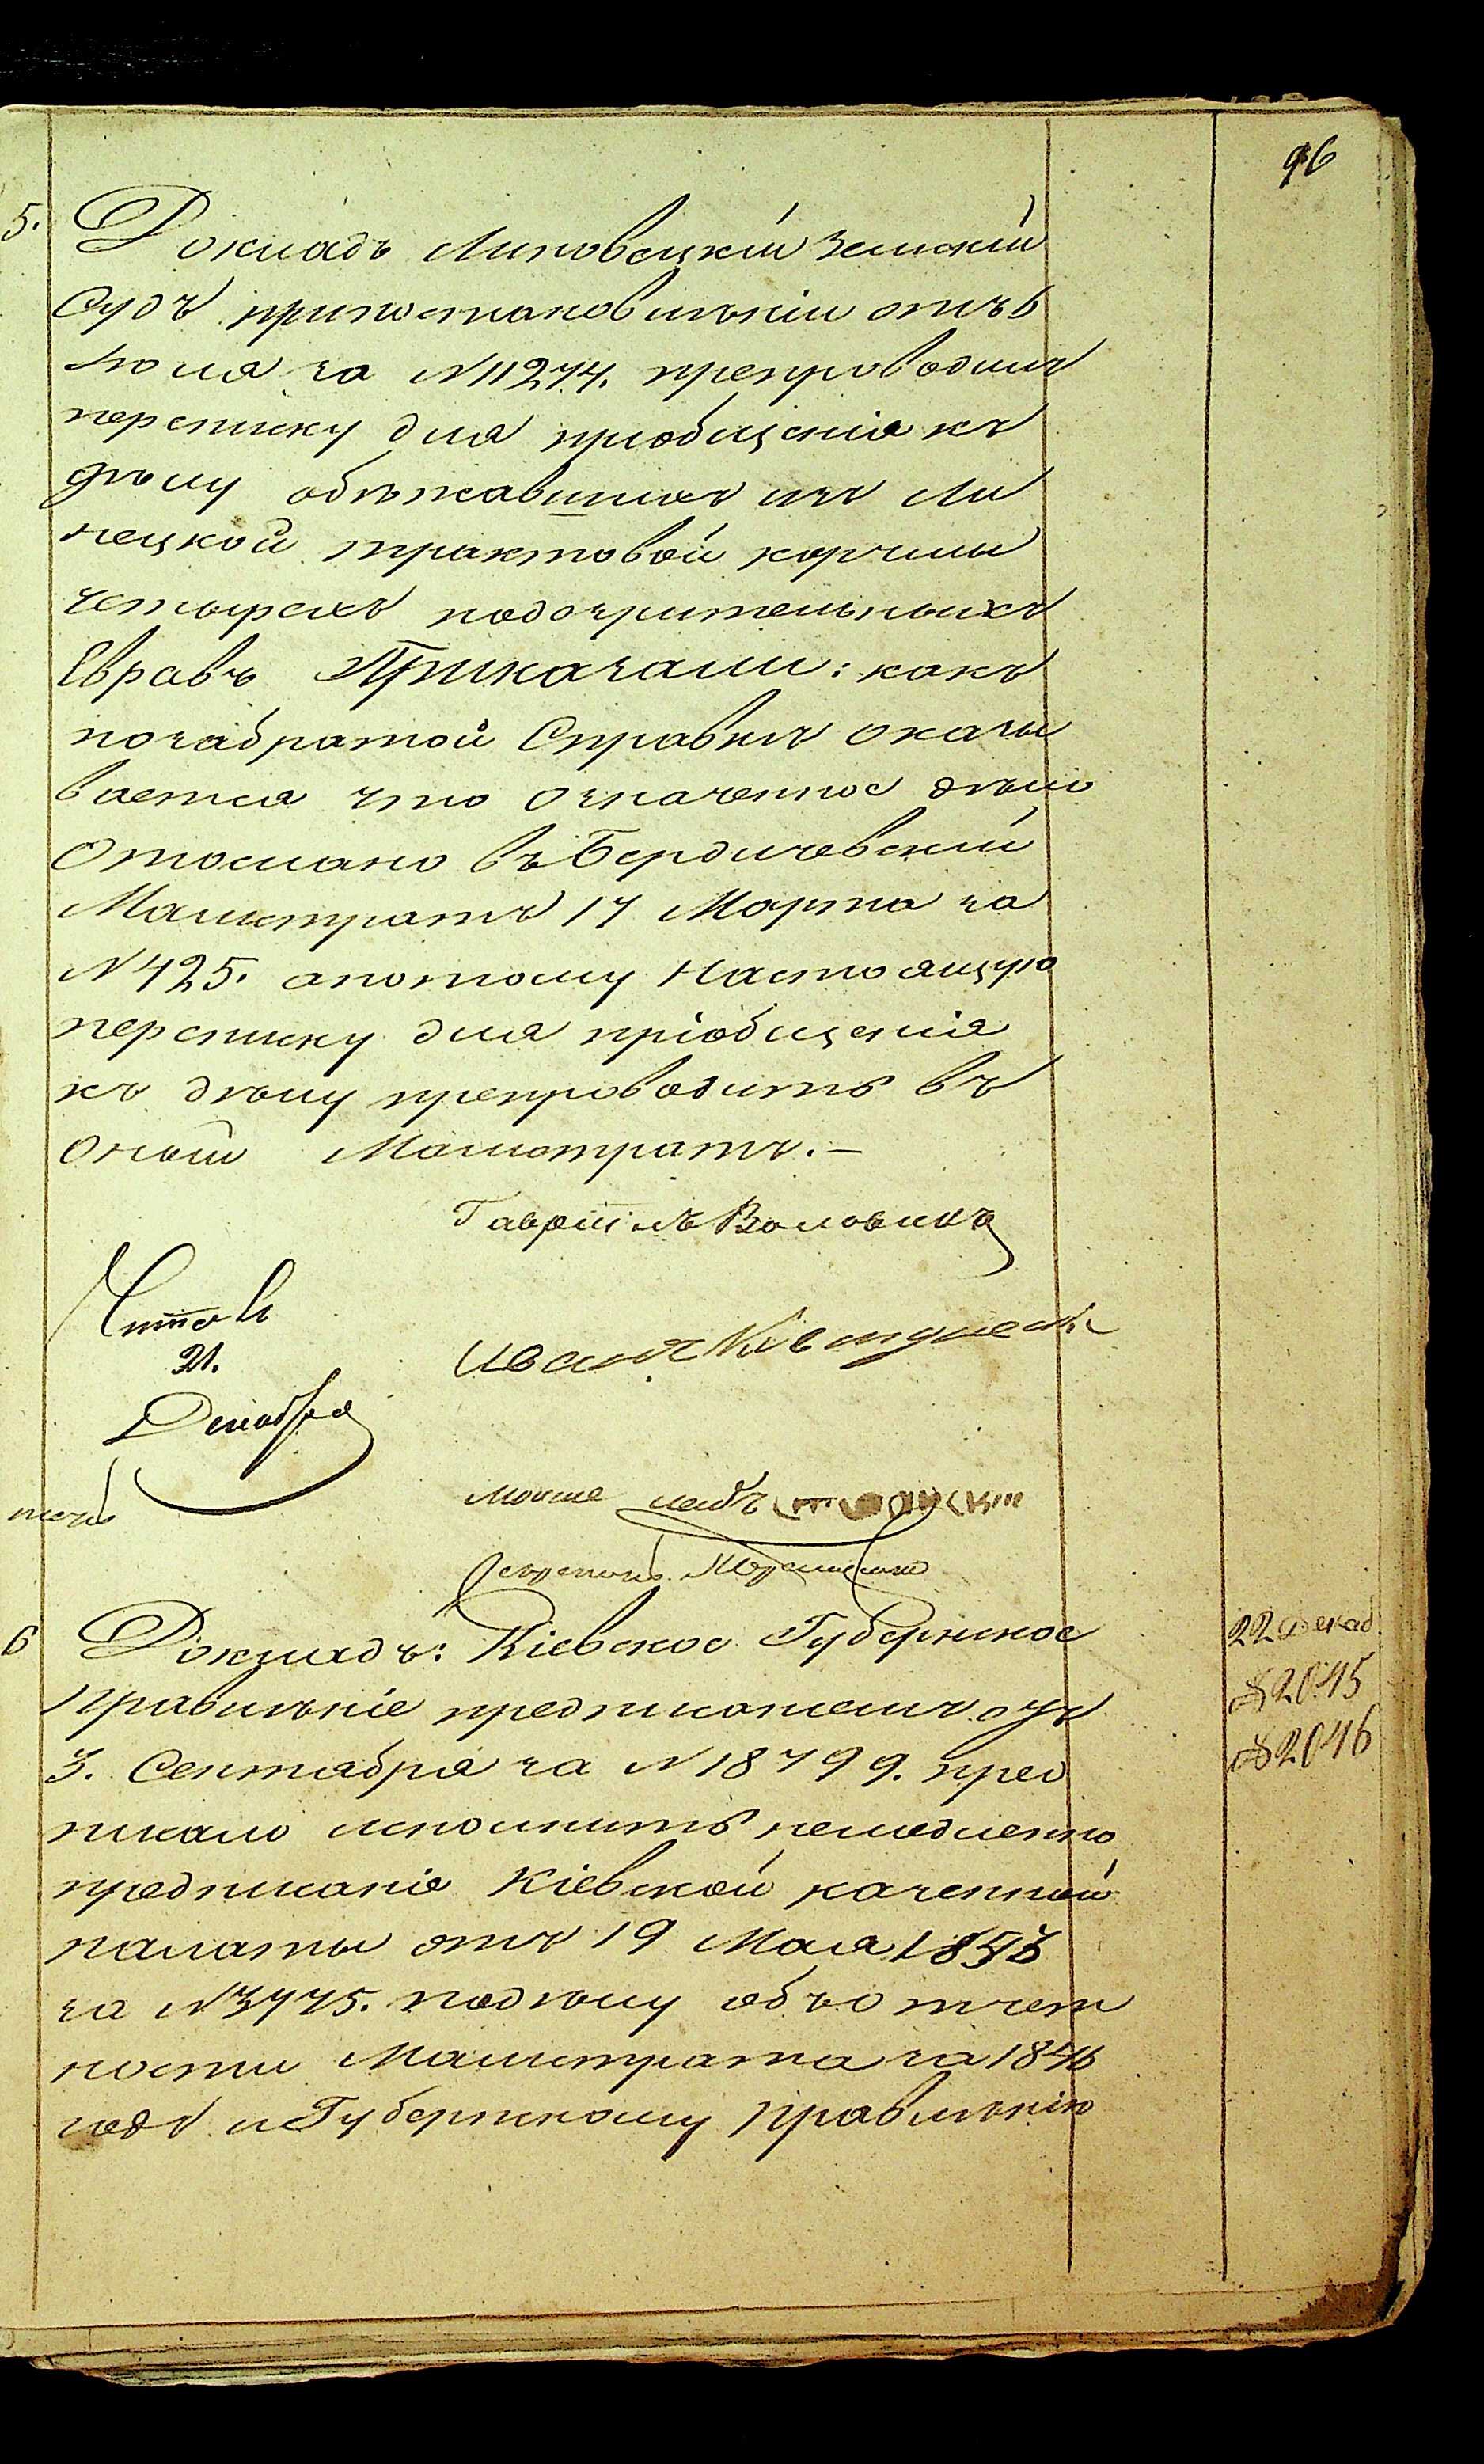 96
5.
Докладъ Липовецкій Земскій
Судъ припостановленіи отъ 6
Іюля за N 11274. препроводилъ
переписку для пріобщенія къ
дѣлу обѣжавшихъ изъ Ли
нецкой трактовой корчмы
четырехъ подозрительныхъ
Евравъ Приказали: какъ
позабратой Справкѣ оказы
вается что означенное дѣло
Отослано въ Бердичевскій
Магистратъ 17 Марта за
N 425. апотому Настоящую
переписку для пріобщенія
къ дѣлу препроводить въ
оный Магистратъ.—
Гавріилъ Воловикъ
Читалъ
21.
Декабря
Иванъ
Мошке
Секретарь
6
Докладъ: Кіевское Губернское
Правленіе предписаніемъ отъ
3. Сентября за N 18799. пред
писало исполнить немедленно
предписаніе Кіевской казенной
палаты отъ 19 Мая 1853
за N 3775. подѣлу объ отчет
ности Магистрата за 1846
годъ и Губернскому Правленію
22 Декаб
№ 2045
№ 2046